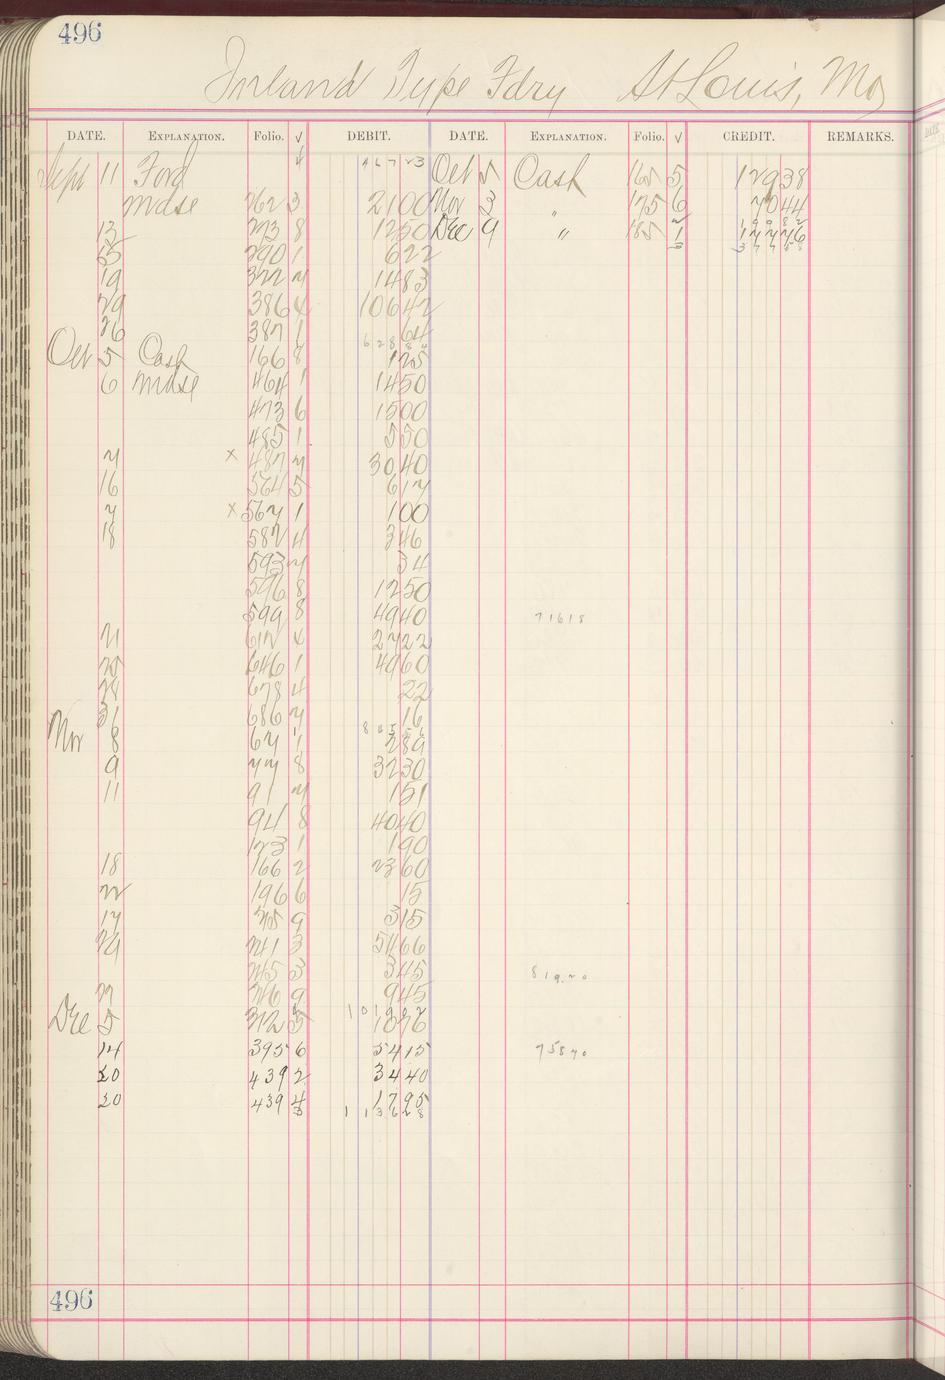 496
Inland Type Fdry St Louis, Mo
DATE. EXPLANATION. Folio. √ DEBIT. DATE. EXPLANATION. Folio. √ CREDIT. REMARKS.
Sept 11 Ford √ 467 23 Oct 5 Cash 165 5 129 38
Mdse 262 3 21 00 Nov 3 " 175 6 70 44
13 273 8 12 50 Dec 9 " 185 1 177 76
15 290 1 6 22
19 322 7 14 83
29 386 4 106 42
26 387 1 64
Oct 5 Cash 166 8 1 25
6 Mdse 464 1 14 50
473 6 15 00
485 1 5 50
7 x 487 7 30 40
16 564 5 6 17
7 x 567 1 1 00
18 582 4 3 46
593 7 34
596 8 12 50
599 8 49 40 716 18
21 612 4 27 22
25 646 1 49 60
28 678 4 22
31 686 7 16
Nov 8 67 1 2 89
9 77 8 32 30
11 91 7 1 51
94 8 40 40
123 1 1 90
18 166 2 23 60
22 196 6 15
17 215 9 3 15
29 241 3 54 66
245 3 3 45 819.20
27 246 9 9 45
Dec 5 312 5 10 76
14 395 6 54 15 758 70
20 439 2 34 40
20 439 4 17 95
1 136 28
496